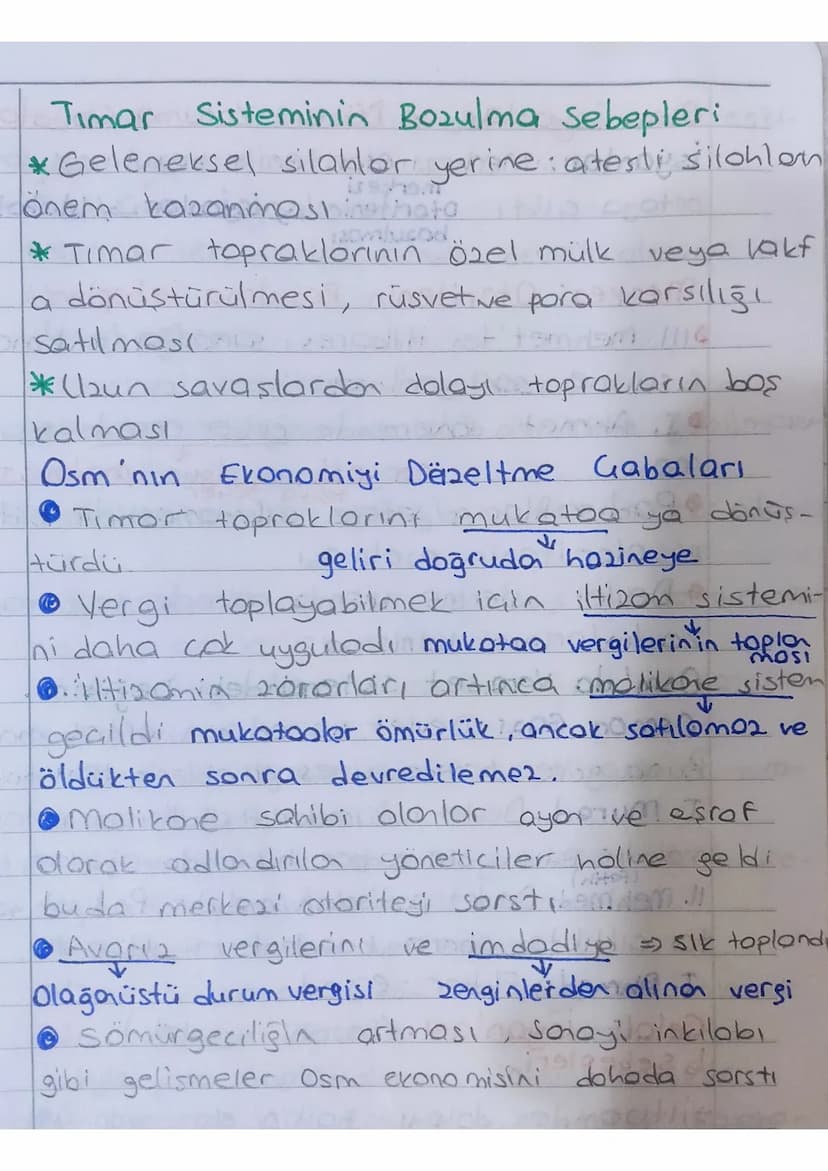 Tımar Sisteminin Bozulma Sebepleri
* Geleneksel silahlar yerine : ateşli silahların
önem kazanması
* Tımar topraklarının özel mülk veya vakf
a dönüştürülmesi, rüşvet ve para karşılığı
satılması
* Uzun savaşlardan dolayı toprakların boş
kalması
Osm'nın Ekonomiyi Düzeltme Çabaları
Tımar topraklarını mukataa ya dönüş-
türdü geliri doğrudan hazineye
Vergi toplayabilmek için iltizam sistemi-
ni daha çok uyguladı mukataa vergilerinin toplan
ması
İltizamın zararları artınca malikane sistem
geçildi mukataalar ömürlük, ancak satılamaz ve
öldükten sonra devredilemez.
Malikane sahibi olanlar ayan ve eşraf
olarak adlandırılan yöneticiler haline geldi
bu da merkezi otoriteyi sarstı
Avarız vergilerini ve imdadiye ⇒ sık toplandı
Olağanüstü durum vergisi zenginlerden alınan vergi
Sömürgeciliğin artması, sanayi inkilabı
gibi gelişmeler Osm ekonomisini dahada sarstı